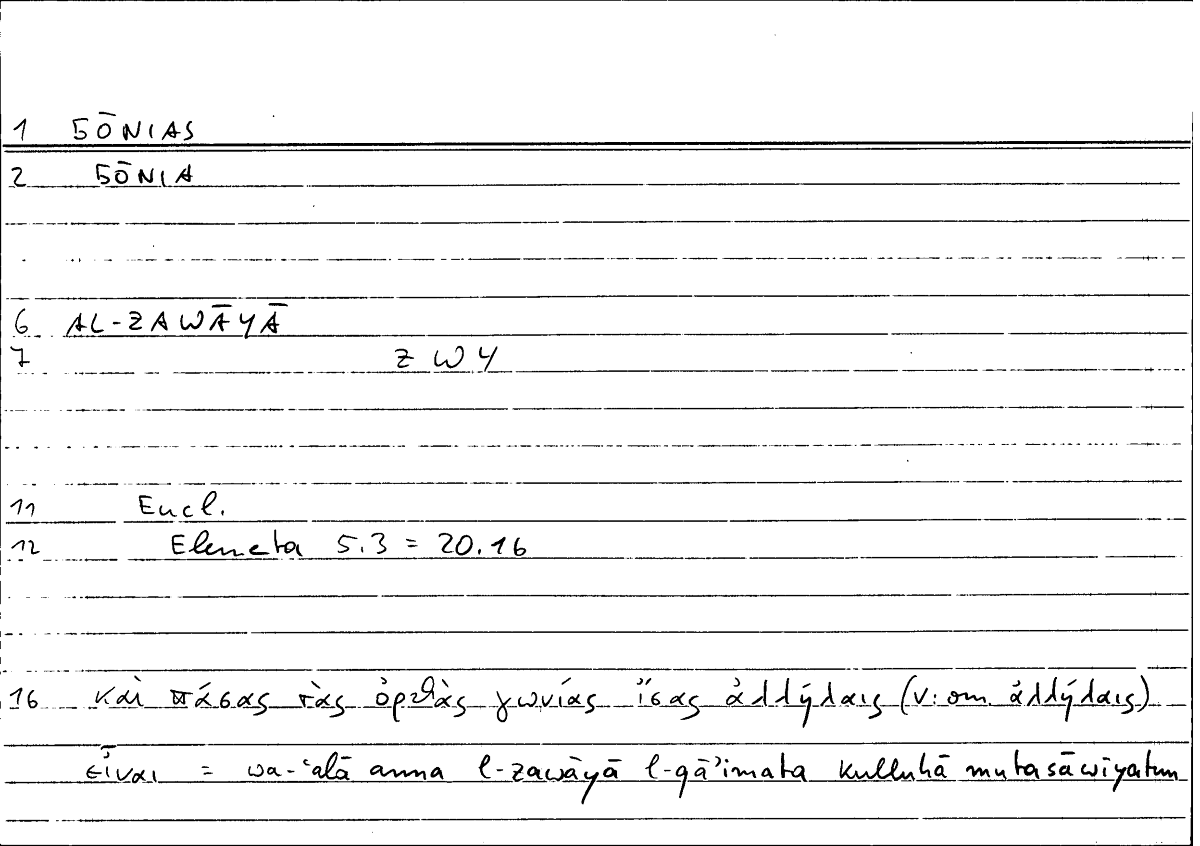 1 5ŌNIAS
2 5ŌNIA
6 AL-ZAWĀYĀ
7 Z W Y
11 Eucl.
12 Elementa 5.3 = 20.16
16 καὶ πάσας τὰς ὀρθὰς γωνίας ἴσας ἀλλήλαις (v: om. ἀλλήλαις)
εἶναι = wa-ʿalā anna l-zawāyā l-qāʾimata kulluhā mutasāwiyatun